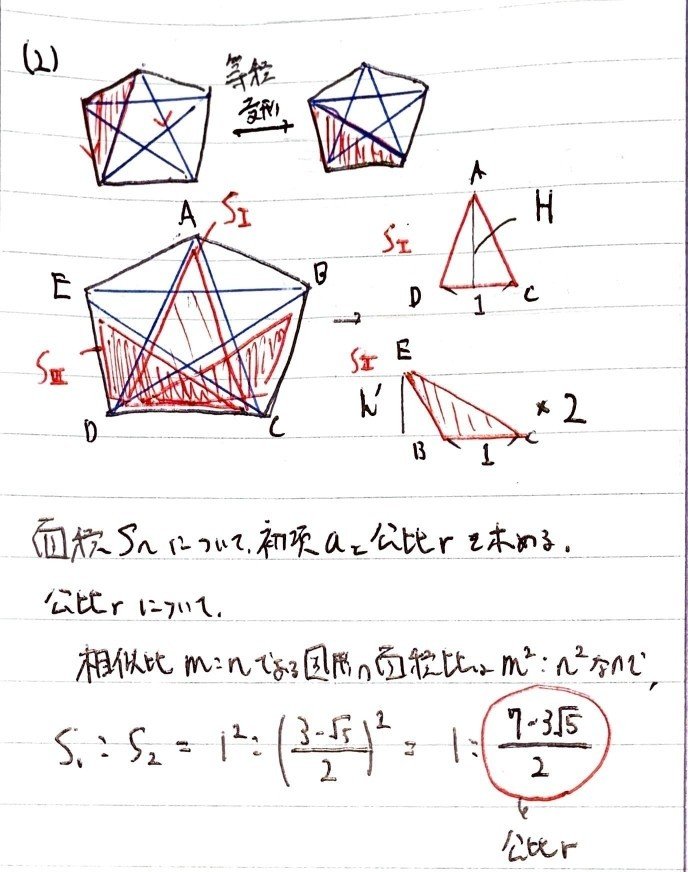 (2)
等積
変形
A
S_I
E
B
S_II
D
C
A
S_I
H
D
1
C
S_II
E
h'
× 2
B
1
C
面積 Sn について、初項 a と 公比 r を求める。
公比 r について、
相似比 m:n である図形の面積比は m² : n² なので、
S₁ : S₂ = 1² : ((3-√5)/2)² = 1 : (7-3√5)/2
公比 r